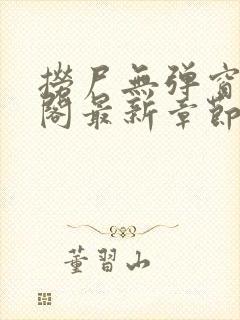 撈尸無弹窗
閣最新章節
董習山